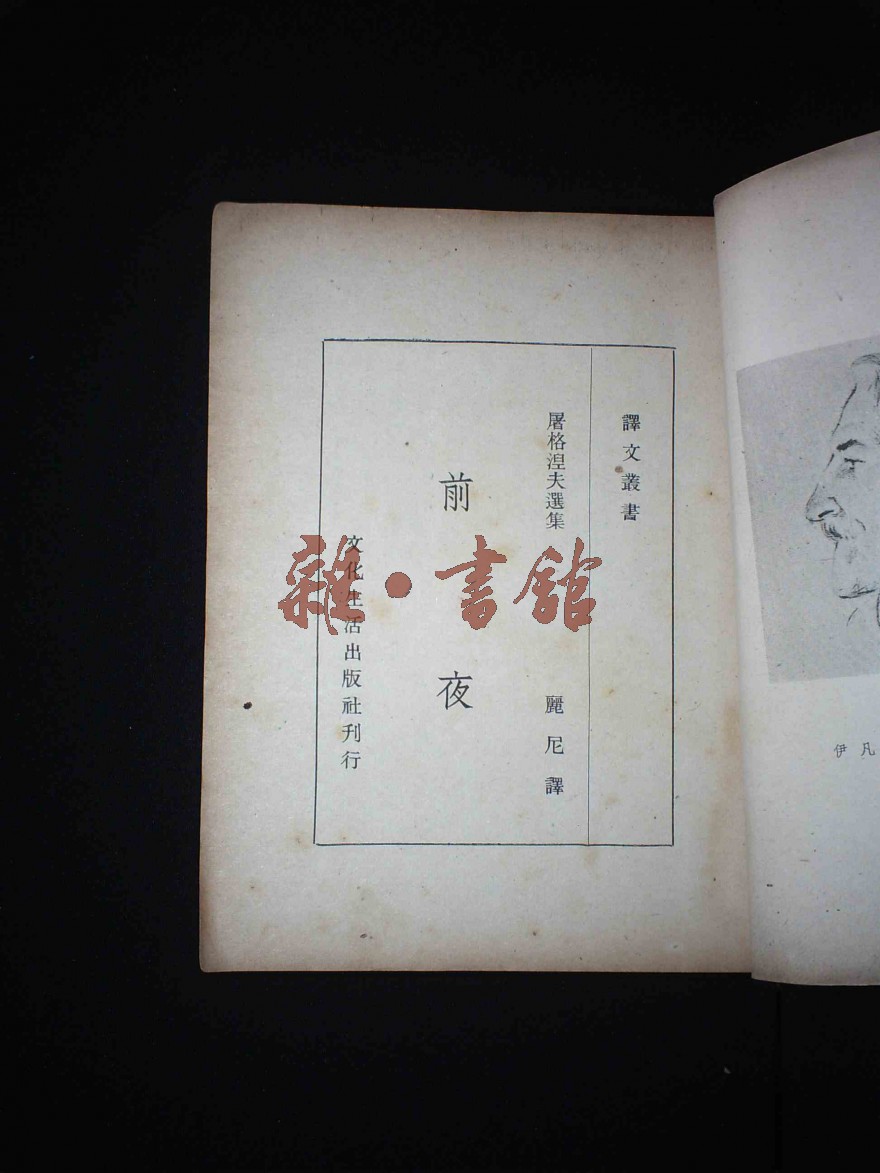 譯文叢書
屠格涅夫選集
麗尼譯
前夜
文化生活出版社刊行
雜·書館
伊凡